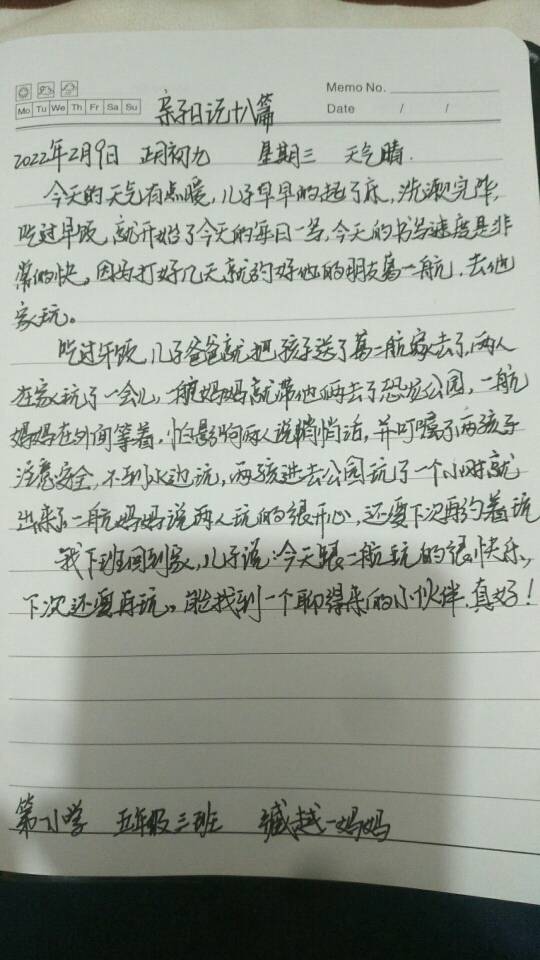 Memo No.
Mo Tu We Th Fr Sa Su
Date / /
亲子日记十八篇
2022年2月9日 正月初九 星期三 天气晴.
今天的天气有点暖,儿子早早的起了床,洗漱完毕,
吃过早饭,就开始了今天的每日一学,今天的书写速度是非
常的快。因为打好几天就约好他的朋友葛一航,去他
家玩。
吃过午饭,儿子爸爸就把孩子送了葛一航家去了,两人
在家玩了一会儿,一航妈妈就带他俩去了恐龙公园,一航
妈妈在外间等着,怕影响两人说悄悄话,并叮嘱了两孩子
注意安全,不到水边玩,两孩进去公园玩了一个小时就
出来了,一航妈妈说两人玩的很开心,还要下次再约着玩
我下班回到家,儿子说:今天跟一航玩的很快乐,
下次还要再玩。能找到一个聊得来的小伙伴,真好!
第一小学 五年级三班 臧越一妈妈